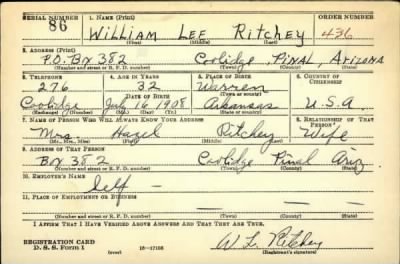 SERIAL NUMBER 1. NAME (Print) ORDER NUMBER
86 William Lee Ritchey 436
(First) (Middle) (Last)
2. ADDRESS (Print)
P.O. Box 382 Coolidge, Pinal, Arizona
(Number and street or R. F. D. number) (Town) (County) (State)
3. TELEPHONE 4. AGE IN YEARS 5. PLACE OF BIRTH 6. COUNTRY OF CITIZENSHIP
276 32 Warren
DATE OF BIRTH (Town or county)
Coolidge July 16 1908 Arkansas U.S.A.
(Exchange) (Mo.) (Day) (Yr.) (State or country)
7. NAME OF PERSON WHO WILL ALWAYS KNOW YOUR ADDRESS 8. RELATIONSHIP OF THAT PERSON
Mrs. Hazel Ritchey Wife
(Mr., Mrs., Miss) (First) (Middle) (Last)
9. ADDRESS OF THAT PERSON
Box 382 Coolidge Pinal Ariz
(Number and street or R. F. D. number) (Town) (County) (State)
10. EMPLOYER'S NAME
Self —
11. PLACE OF EMPLOYMENT OR BUSINESS
— — — —
(Number and street or R. F. D. number) (Town) (County) (State)
I AFFIRM THAT I HAVE VERIFIED ABOVE ANSWERS AND THAT THEY ARE TRUE.
REGISTRATION CARD
D. S. S. Form 1 (over) 16—17105 W. L. Ritchey
(Registrant's signature)